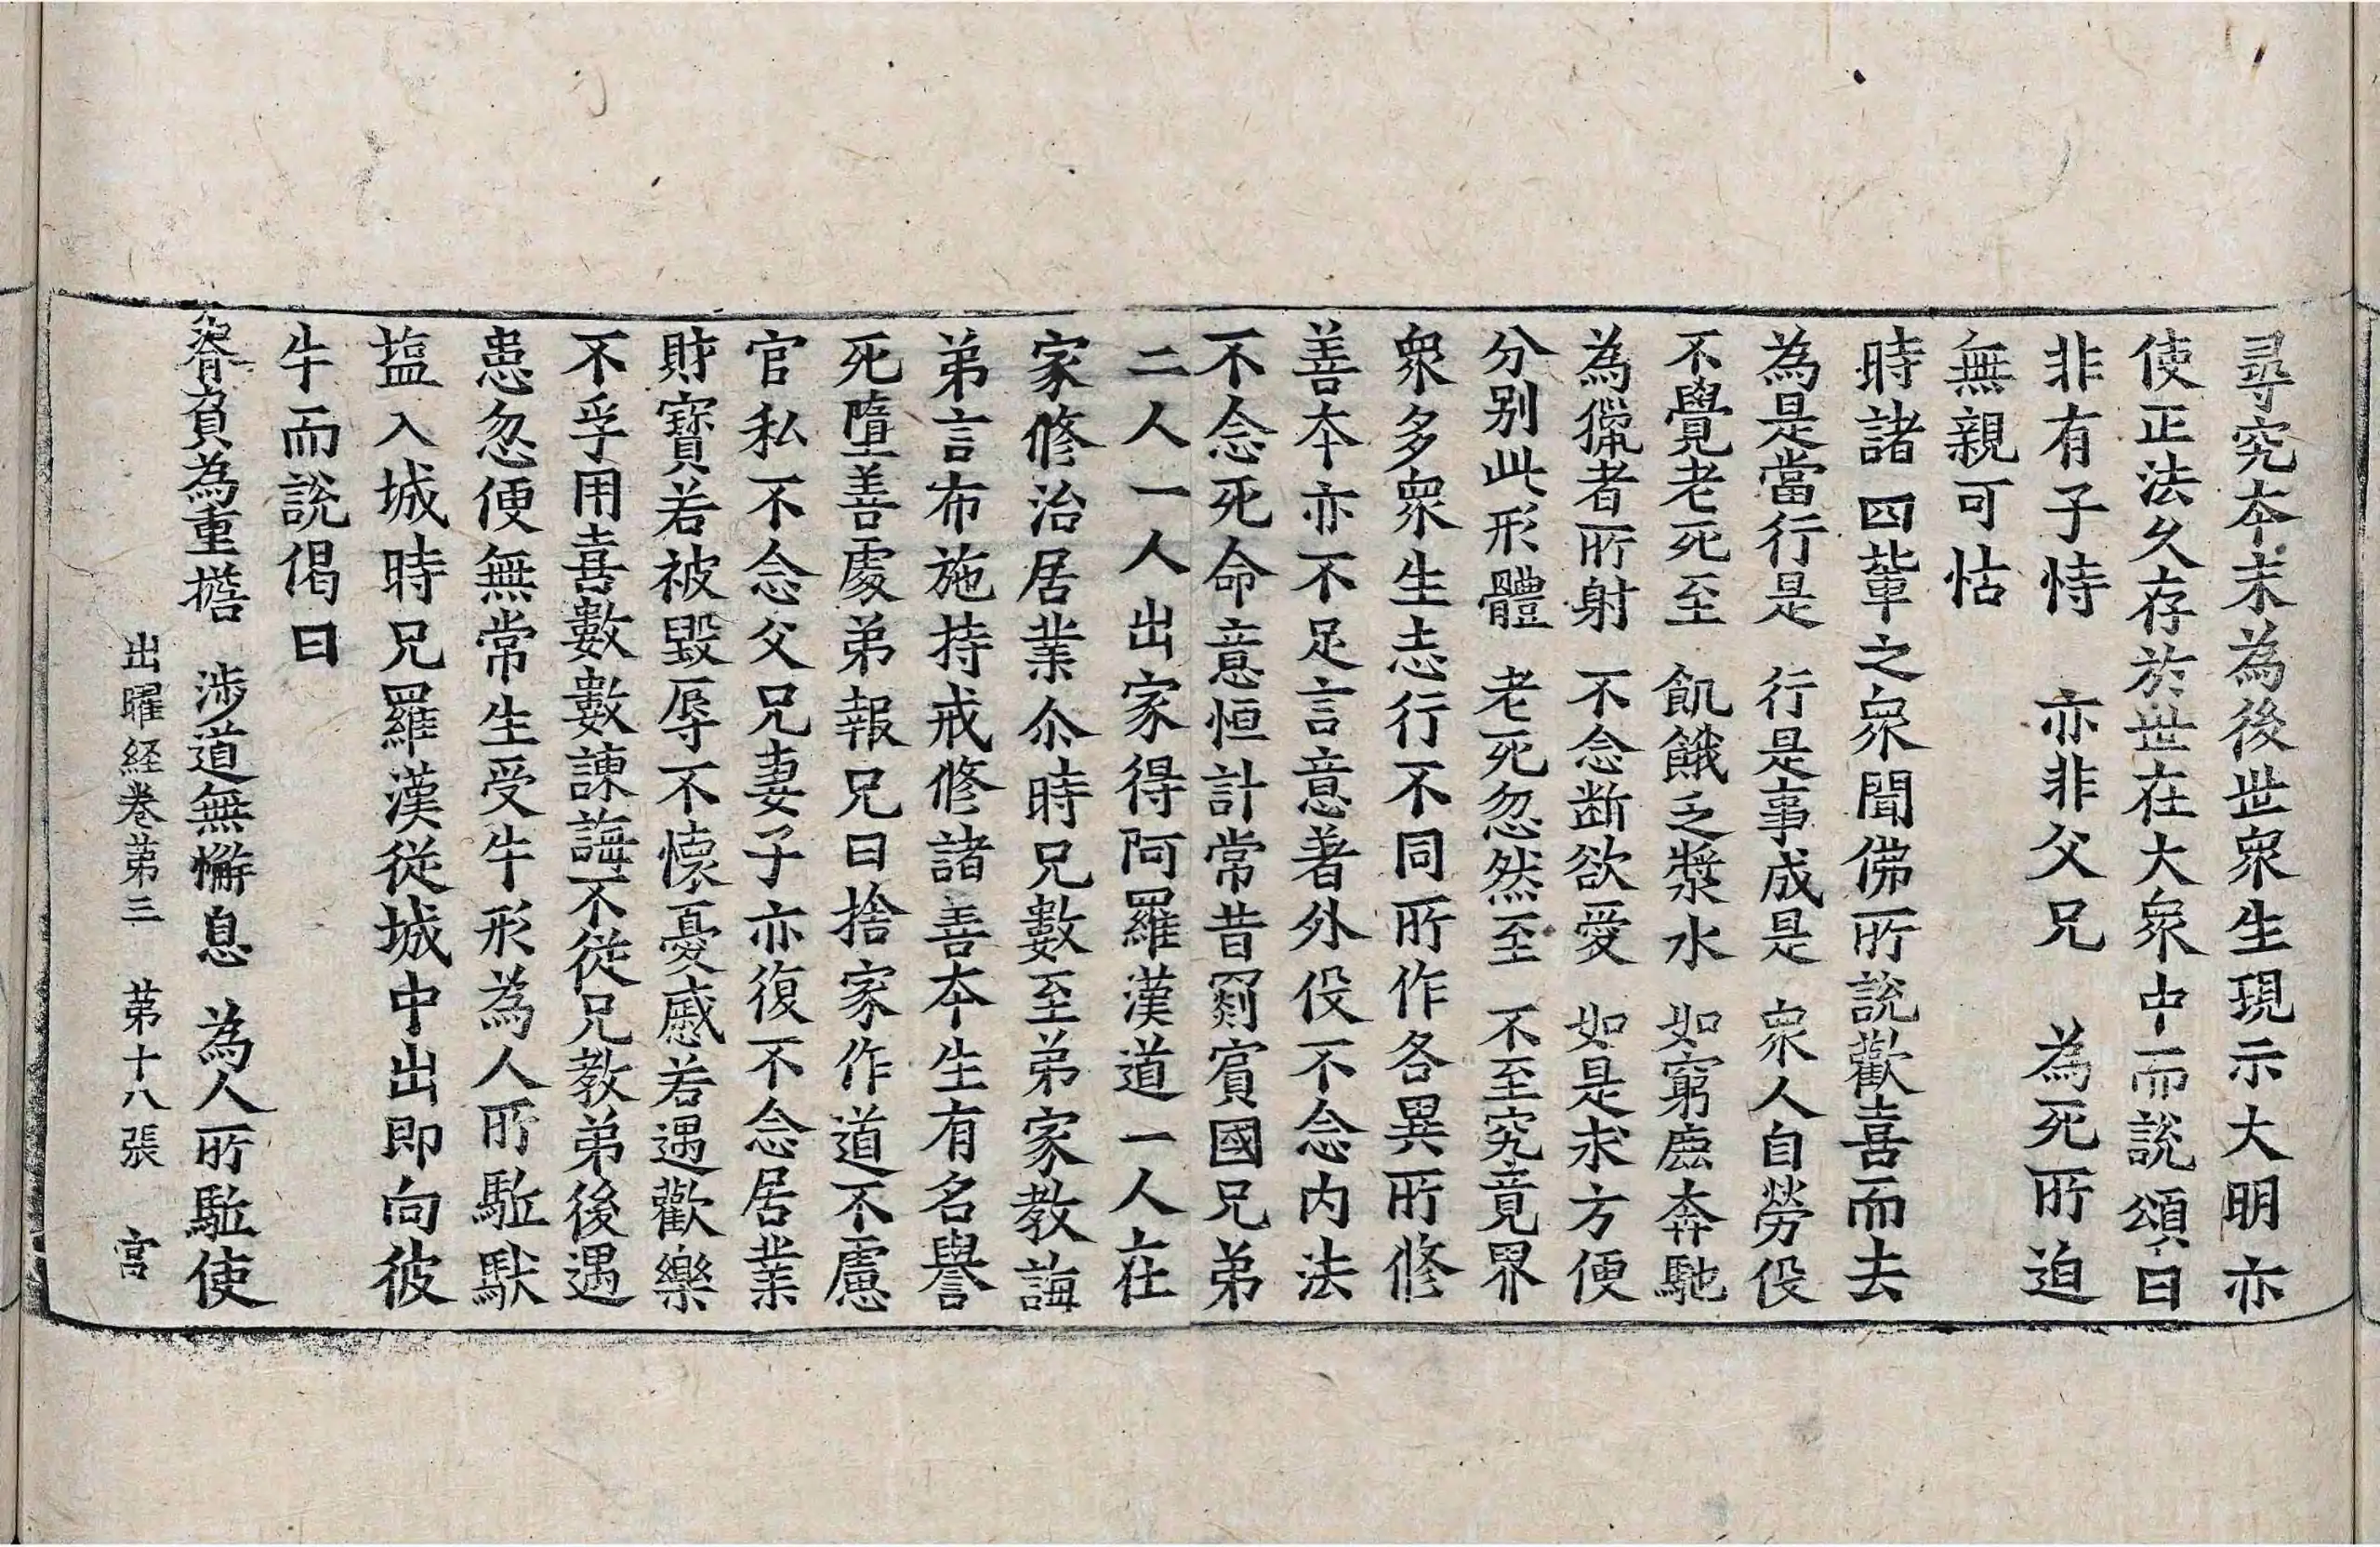 尋究本末為後世衆生現示大明亦
使正法久存於世在大衆中而說頌曰
非有子恃 亦非父兄 為死所迫
無親可怙
時諸四輩之衆聞佛所說歡喜而去
為是當行是 行是事成是 衆人自勞役
不覺老死至 飢餓乏漿水 如窮鹿奔馳
為獵者所射 不念断欲愛 如是求方便
分别此形體 老死忽然至 不至究竟界
衆多衆生志行不同所作各異所修
善本亦不足言意著外役不念内法
不念死命意恒計常昔罽賓國兄弟
二人一人出家得阿羅漢道一人在
家修治居業尒時兄數至弟家教誨
弟言布施持戒修諸善本生有名譽
死墮善處弟報兄曰捨家作道不慮
官私不念父兄妻子亦復不念居業
財寶若被毀辱不懷憂慼若遇歡樂
不孚用喜數數諫誨不從兄教弟後遇
患忽便無常生受牛形為人所駈馱
塩入城時兄羅漢從城中出即向彼
牛而說偈曰
脊負為重擔 涉道無懈息 為人所駈使
出曜経卷苐三 苐十八張 宫